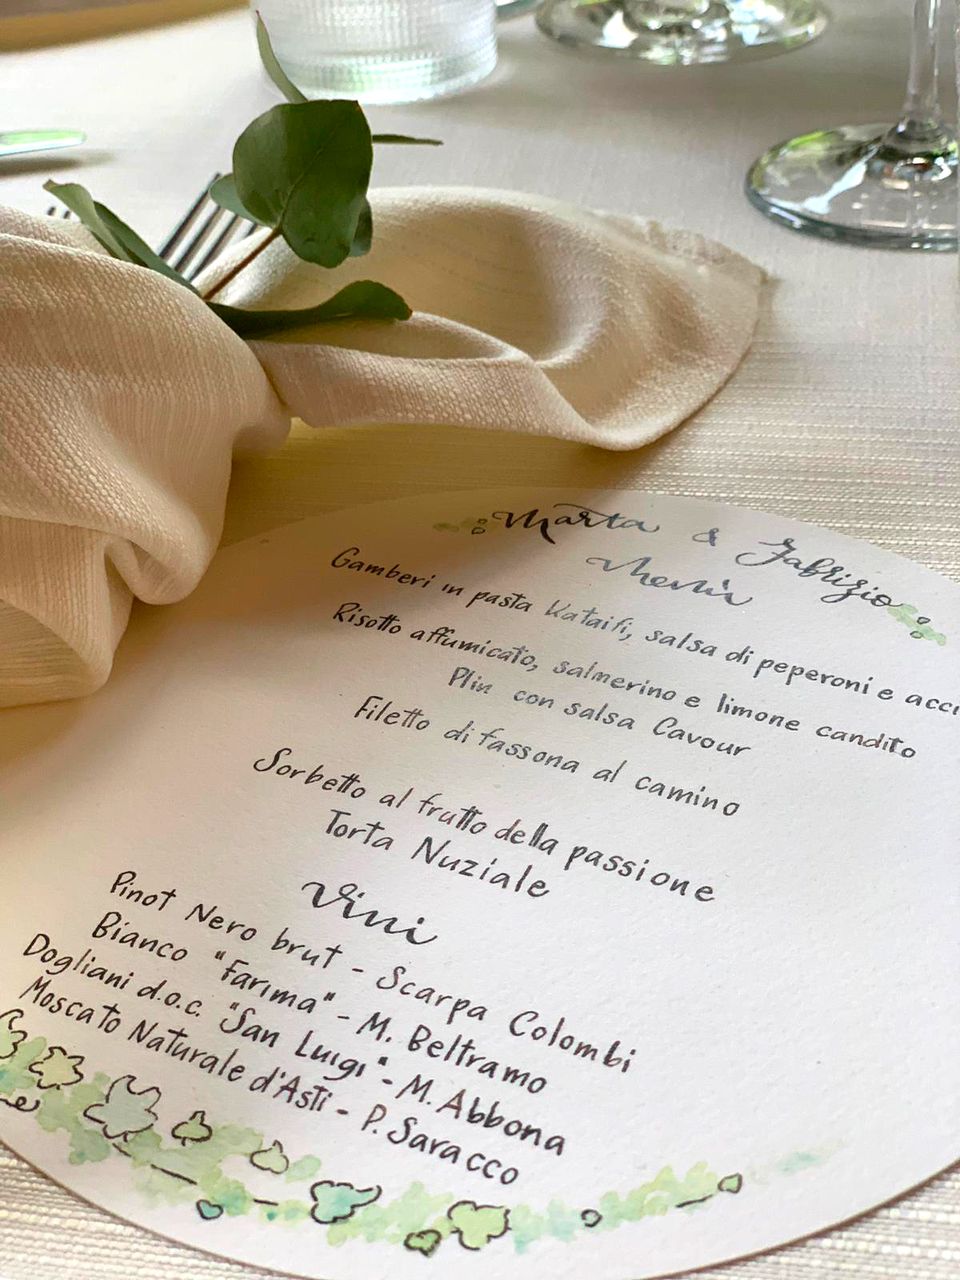 Marta & Fabrizio
Menù
Gamberi in pasta Kataifi, salsa di peperoni e
Risotto affumicato, salmerino e limone candito
Plin con salsa Cavour
Filetto di fassona al camino
Sorbetto al frutto della passione
Torta Nuziale
Vini
Pinot Nero brut - Scarpa Colombi
Bianco "Farima" - M. Beltramo
Dogliani d.o.c. "San Luigi" - M. Abbona
Moscato Naturale d'Asti - P. Saracco